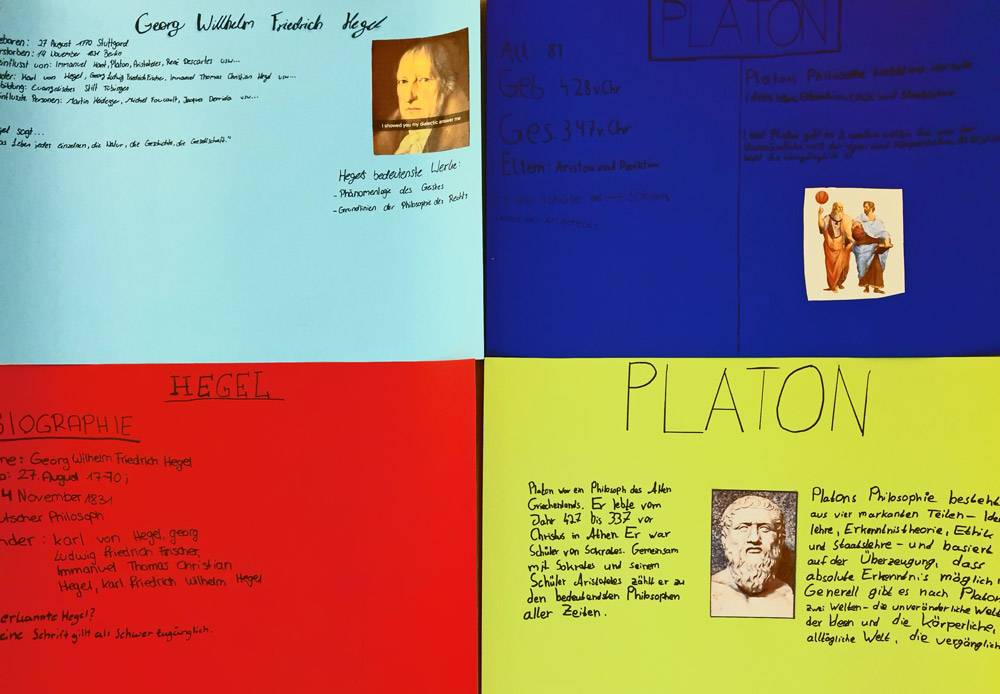 Georg Willhelm Friedrich Hegel
eboren: 27 August 1770 Stuttgard
rstorben: 14 November 1831 Berlin
einflusst von: Immanuel Kant, Platon, Aristoteles, René Descartes usw...
nder: Karl von Hegel, Georg Ludwig Friedrich Fischer, Immanuel Thomas Christian Hegel usw...
bildung: Evangelisches Stift Tübingen
influsste Personen: Martin Heideger, Michel Foucault, Jaques Derrida usw...
gel sagt...
as Leben jedes einzelnen, die Natur, die Geschichte, die Gesellschaft."
I showed you my dialectic answer me
Hegels bedeutenste Werke:
- Phänomenlogie des Geistes
- Grundlinien der Philosophie des Rechts
PLATON
Alt: 81
Geb 428 v.Chr
Ges 347 v.Chr
Eltern: Ariston und Periktion
Platons Philosophie
HEGEL
BIOGRAPHIE
me: Georg Wilhelm Friedrich Hegel
o: 27. August 1770;
4 November 1831
utscher Philosoph
nder: karl von Hegel, georg
Ludwig Friedrich Frischer,
Immanuel Thomas Christian
Hegel, karl Friedrich Wilhelm Hegel
erkannte Hegel?
eine Schrift gilt als Schwer zugänglich.
PLATON
Platon war ein Philosoph des Alten
Griechenlands. Er lebte vom
Jahr 427 bis 337 vor
Christus in Athen Er war
Schüler von Sokrates. Gemeinsam
mit Sokrates und seinem
Schüler Aristoteles zählt er zu
den bedeutendsten Philosophen
aller Zeiten.
Platons Philosophie besteht
aus vier markanten Teilen - Ide
lehre, Erkenntnistheorie, Ethik
und Staatslehre - und basiert
auf der Überzeugung, dass
absolute Erkenntnis möglich i
Generell gibt es nach Platon
zwei Welten - die unveränderliche Welt
der Ideen und die körperliche,
alltägliche Welt, die vergänglich